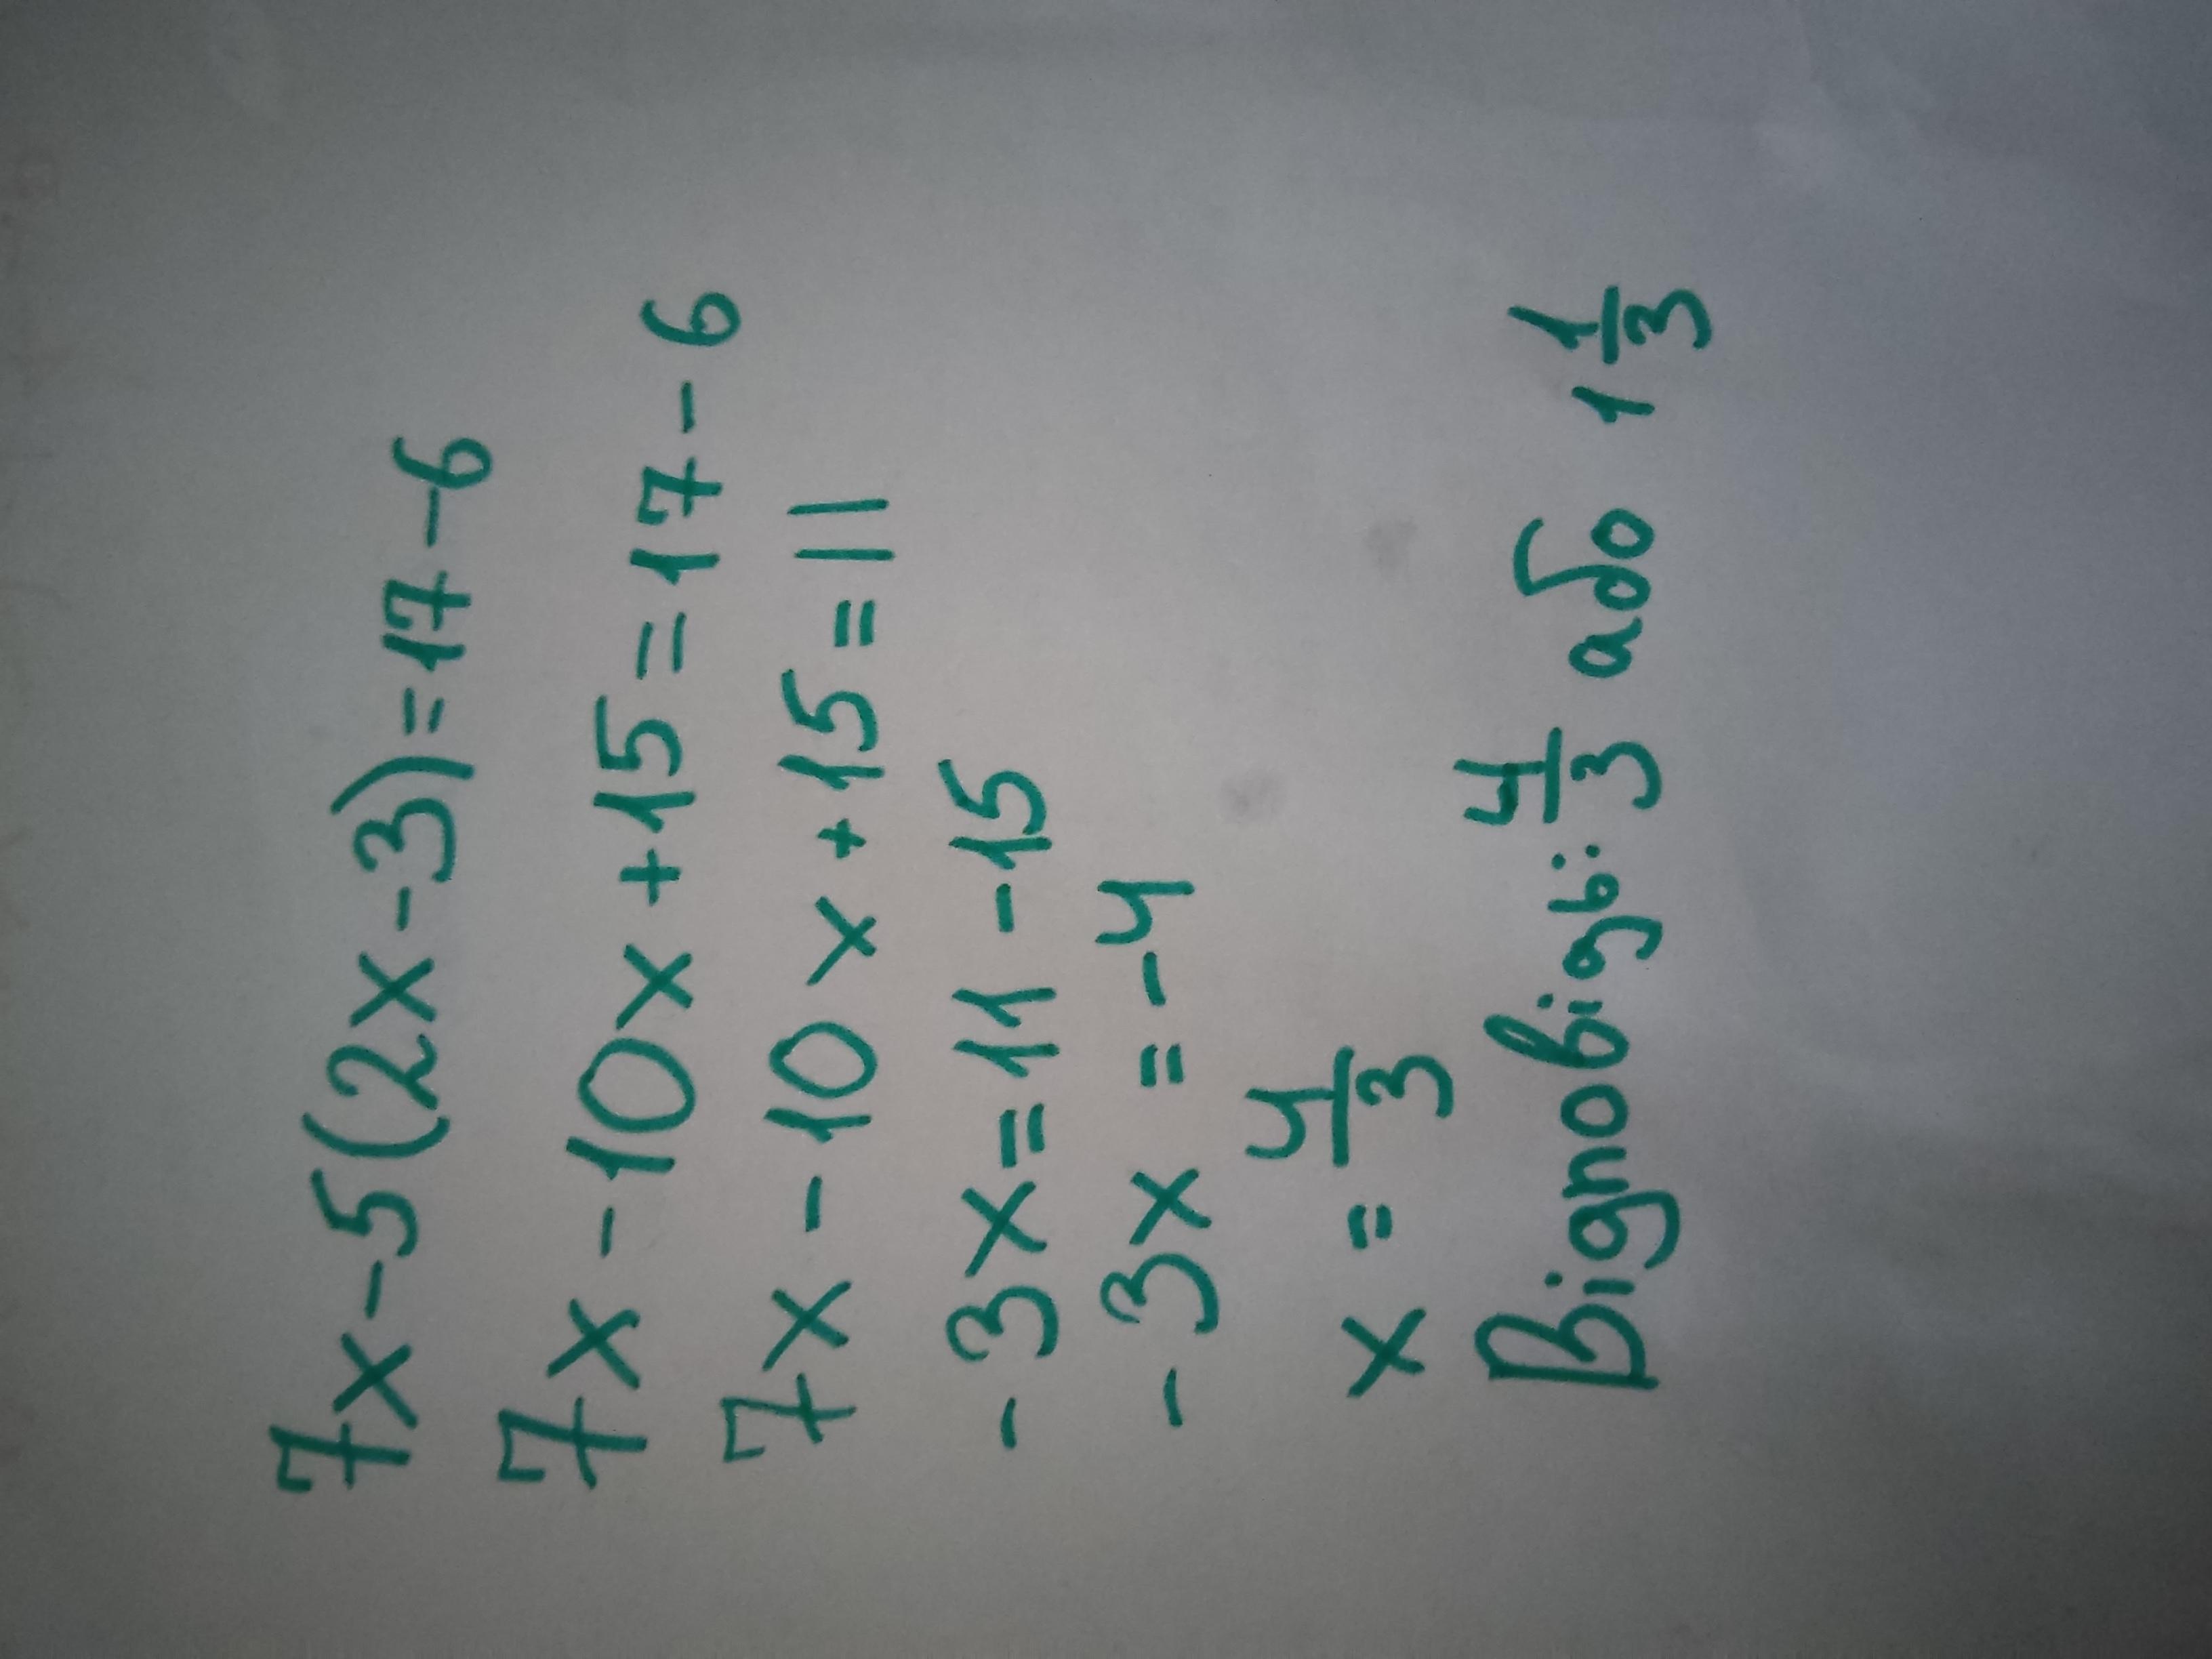 7x-5(2x-3)=17-6
7x-10x+15=17-6
7x-10x+15=11
-3x=11-15
-3x=-4
x=4/3
Відповідь: 4/3 або 1 1/3